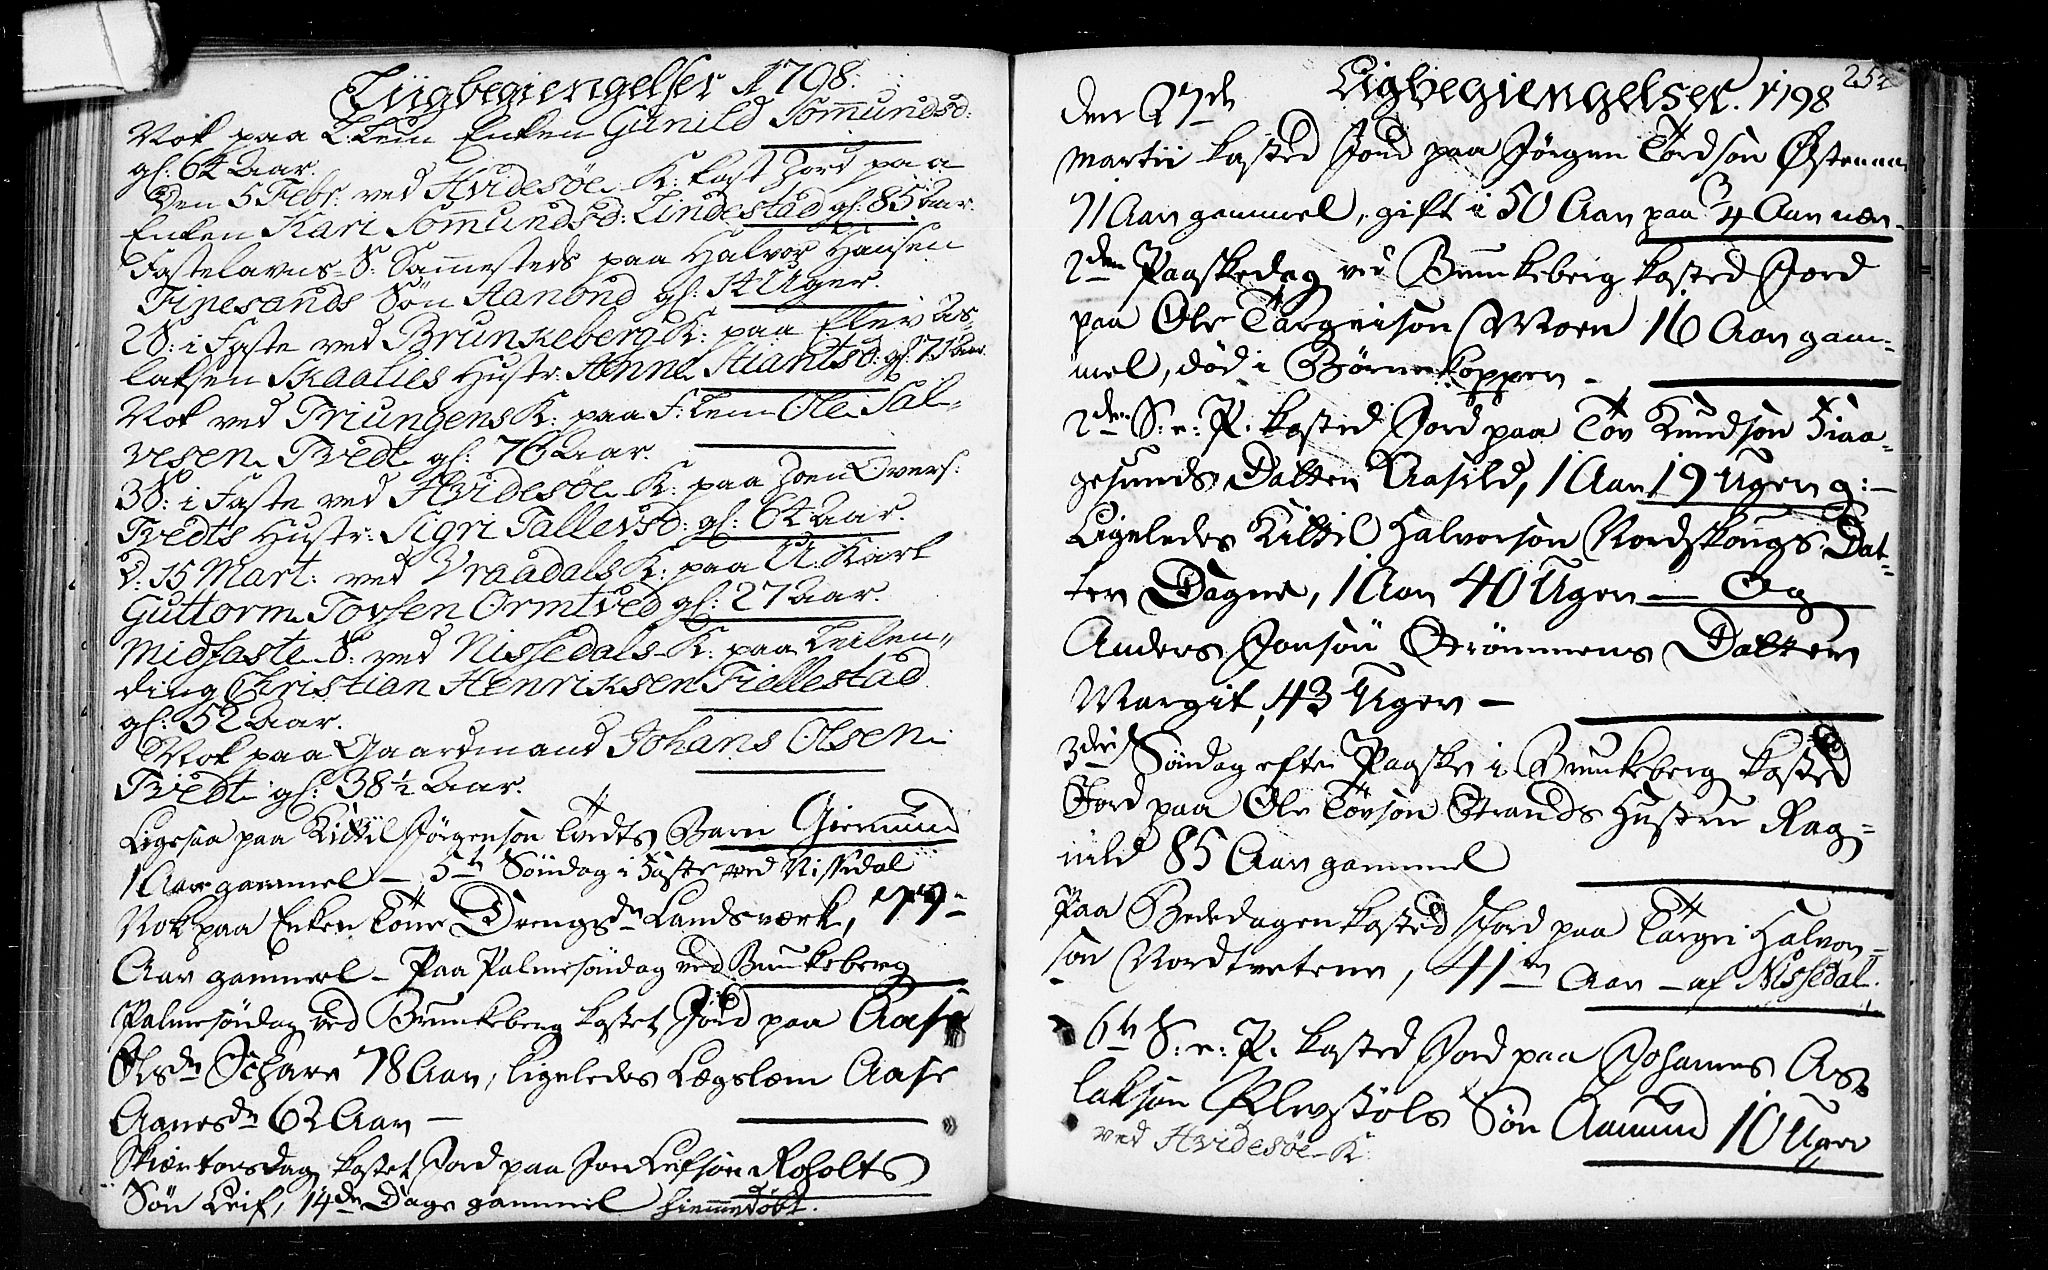 Liigbegiengelser 1798.
Nok paa L: Lem Enken Gunild Tommundsd:
gl: 64 Aar.
Den 5 Febr: ved Hvidesøe K: kast Jord paa
Enken Kari Tommundsd: Lindestad gl: 85 Aar.
Fastelavns-S: Sammesteds paa Halvor Hansen
Finesands Søn Aanond gl: 14 Uger.
2S: i Faste ved Brunkeberg K: paa Elev As-
laksen Skaalies Hustr: Anne Stiantsd: gl: 71 Aar.
Nok ved Triungens K: paa F: Lem Ole Sal-
vesen Tvedt gl: 76 Aar.
3S: i Faste ved Hvidesøe K: paa Joen Overs:
Tvedts Hustr: Sigri Tallevsd: gl: 64 Aar.
D: 15 Mart: ved Vraadals K: paa U: Karl
Guttorm Tovsen Ormtved gl: 27 Aar.
Midfaste-S: ved Nissedals K: paa Leilen-
ding Christian Henriksen Fiellestad
gl: 52 Aar.
Nok paa Gaardmand Johans Olsen
Tvedt gl: 38½ Aar.
Ligesaa paa Kittil Jørgenson Tvedts Barn Giermund
1 Aar gammel – 5te Søndag i Faste ved Nissedal
Nok paa Enken Tone Drengsdr Landsværk, 77-
Aar gammel – Paa Palmesøndag ved Brunkeberg
Palmesøndag ved Brunkeberg kastet Jord paa Aase
Olsdr Schare 78 Aar, ligeledes Lægslem Aase
Aanesdr 62 Aar –
Skiertorsdag kastet Jord paa Jon Leifson Roholts
Søn Leif, 14de Dage gammel hiemmedøbt.
252
Ligbegiengelser. 1798
den 27de
Martii kasted Jord paa Jørgen Tordson Østenaa
71 Aar gammel, gift i 50 Aar paa 3/4 Aar nær.
2den Paaskedag ved Brunkeberg kasted Jord
paa Ole Targeison Moen 16 Aar gam-
mel, død i Børnekopper –
2den S: e: P: kasted Jord paa Tov Knudson Fiaa-
gesunds Datter Aasild, 1 Aar 19 Uger g: –
Ligeledes Kittil Halvorson Nordskougs Dat-
ter Dagne, 1 Aar 40 Uger – Og
Anders Jonson Strømmens Datter
Margit, 43 Uger –
3die Søndag efter Paaske i Brunkeberg kasted
Jord paa Ole Tovson Strands Hustrue Rag-
nild 85 Aar gammel
Paa Bededagen kasted Jord paa Targei Halvor-
son Nordtvetene, 41 Aar – af Nissedal.
6te S: e: P: kasted Jord paa Johannes As-
lakson Flegstøls Søn Aamund 10 Uger
ved Hvidesøe K: